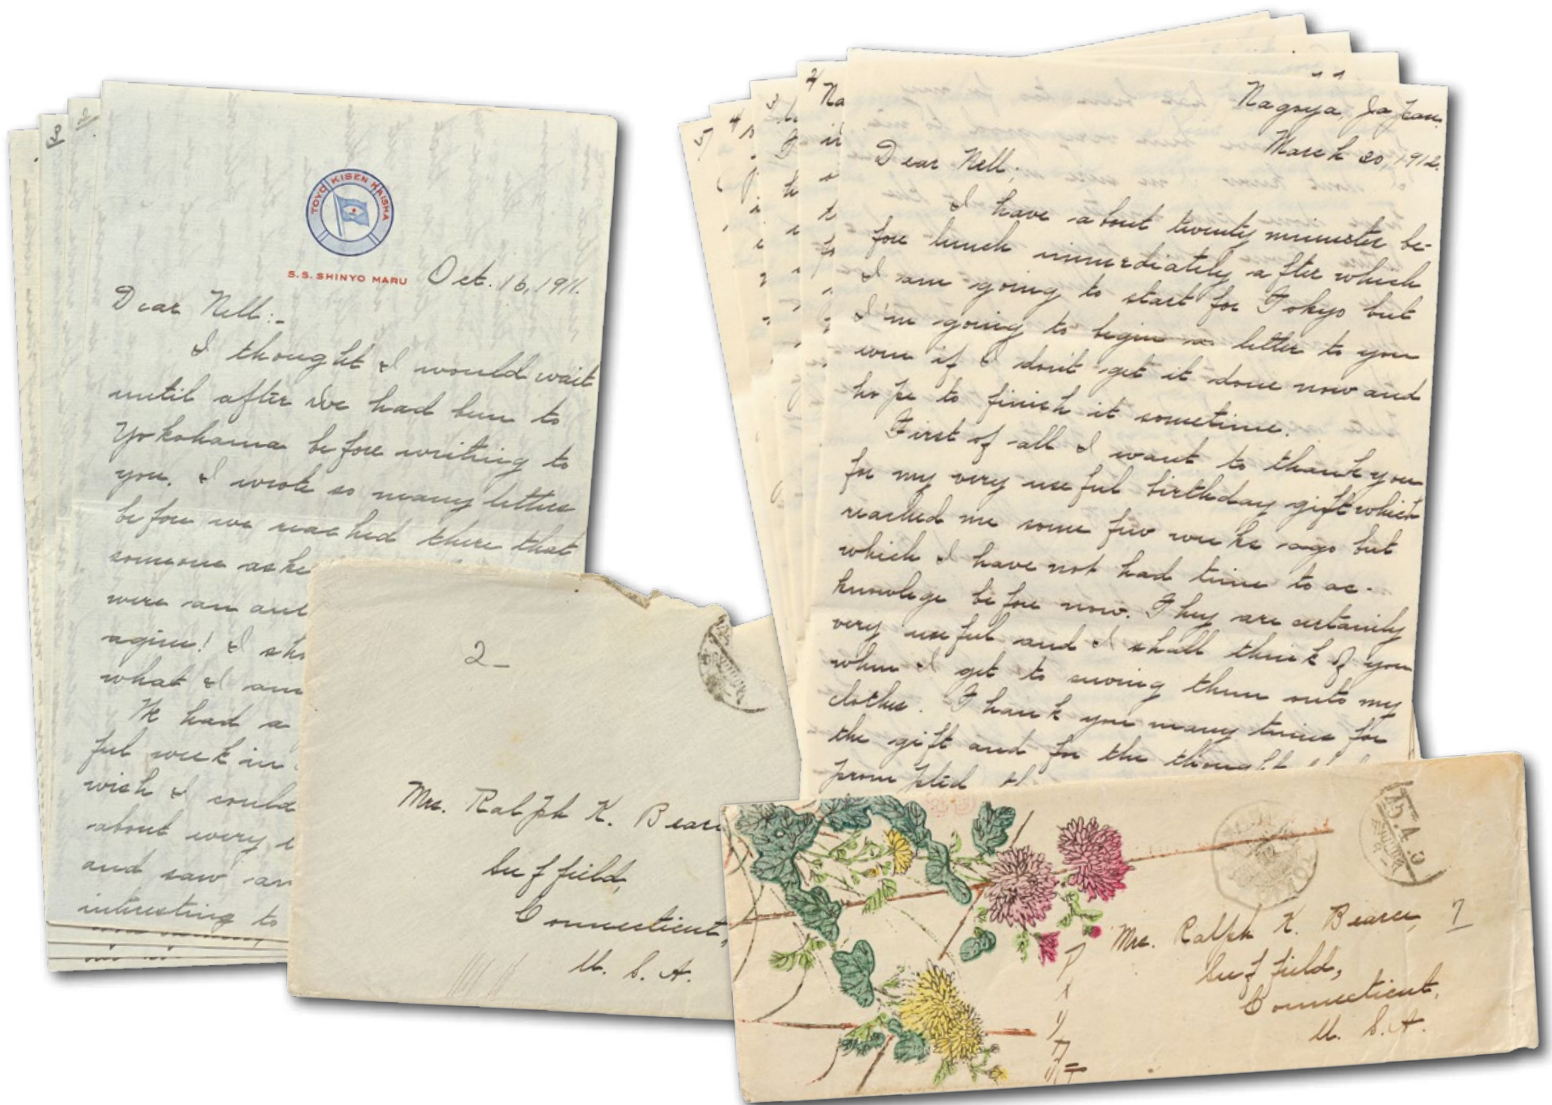 TOYO KISEN KAISHA
S.S. SHINYO MARU
Oct. 16, 1911.
Dear Nell:-
I thought I would wait
until after we had been to
Yokohama before writing to
you. I wrote so many letters
before we reached there that
someone aske
were an aut
agine! I sh
what I am
We had a
ful week in
wish I could
about every
and saw an
interesting to
2-
Mrs. Ralph K. Bearce
Suffield,
Connecticut,
U. S. A.
Nagoya, Japan.
March 20, 1912.
Dear Nell:
I have about twenty minuster be-
fore lunch immediately after which
I am going to start for Tokyo but
I'm going to begin a letter to you
even if I don't get it done now and
hope to finish it sometime.
First of all I want to thank you
for my very useful birthday gift which
reached me some few weeks ago but
which I have not had time to ac-
knowlege before now. They are certainly
very useful and I shall think of you
when I get to sewing them onto my
clothes. Thank you many times for
the gift and for the thought
prompted th
Mrs. Ralph K. Bearce, 7
Suffield,
Connecticut,
U. S. A.